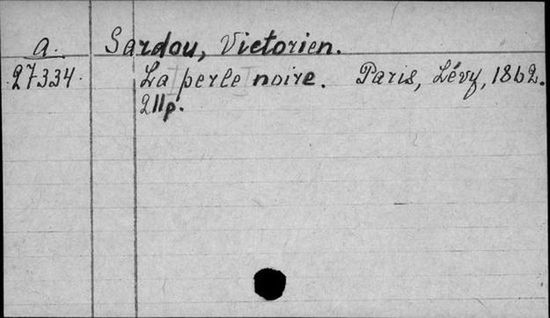 a. Sardou, Victorien.
27334. La perle noire. Paris, Lévy, 1862.
211p.